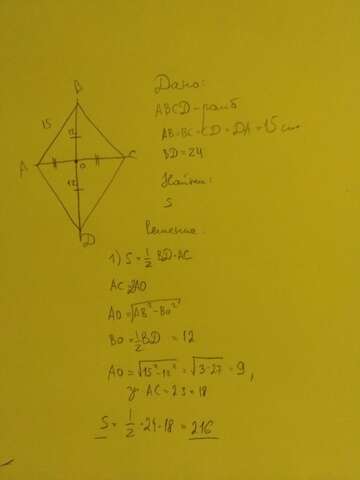 B
15
12
A
O
C
12
D
Дано:
ABCD - ромб
AB=BC=CD=DA=15 см
BD=24
Найти:
S
Решение:
1) S=1/2 BD·AC
AC=2AO
AO=√AB²-BO²
BO=1/2BD=12
AO=√15²-12²=√3·27=9,
AC=2·9=18
S=1/2·24·18=216